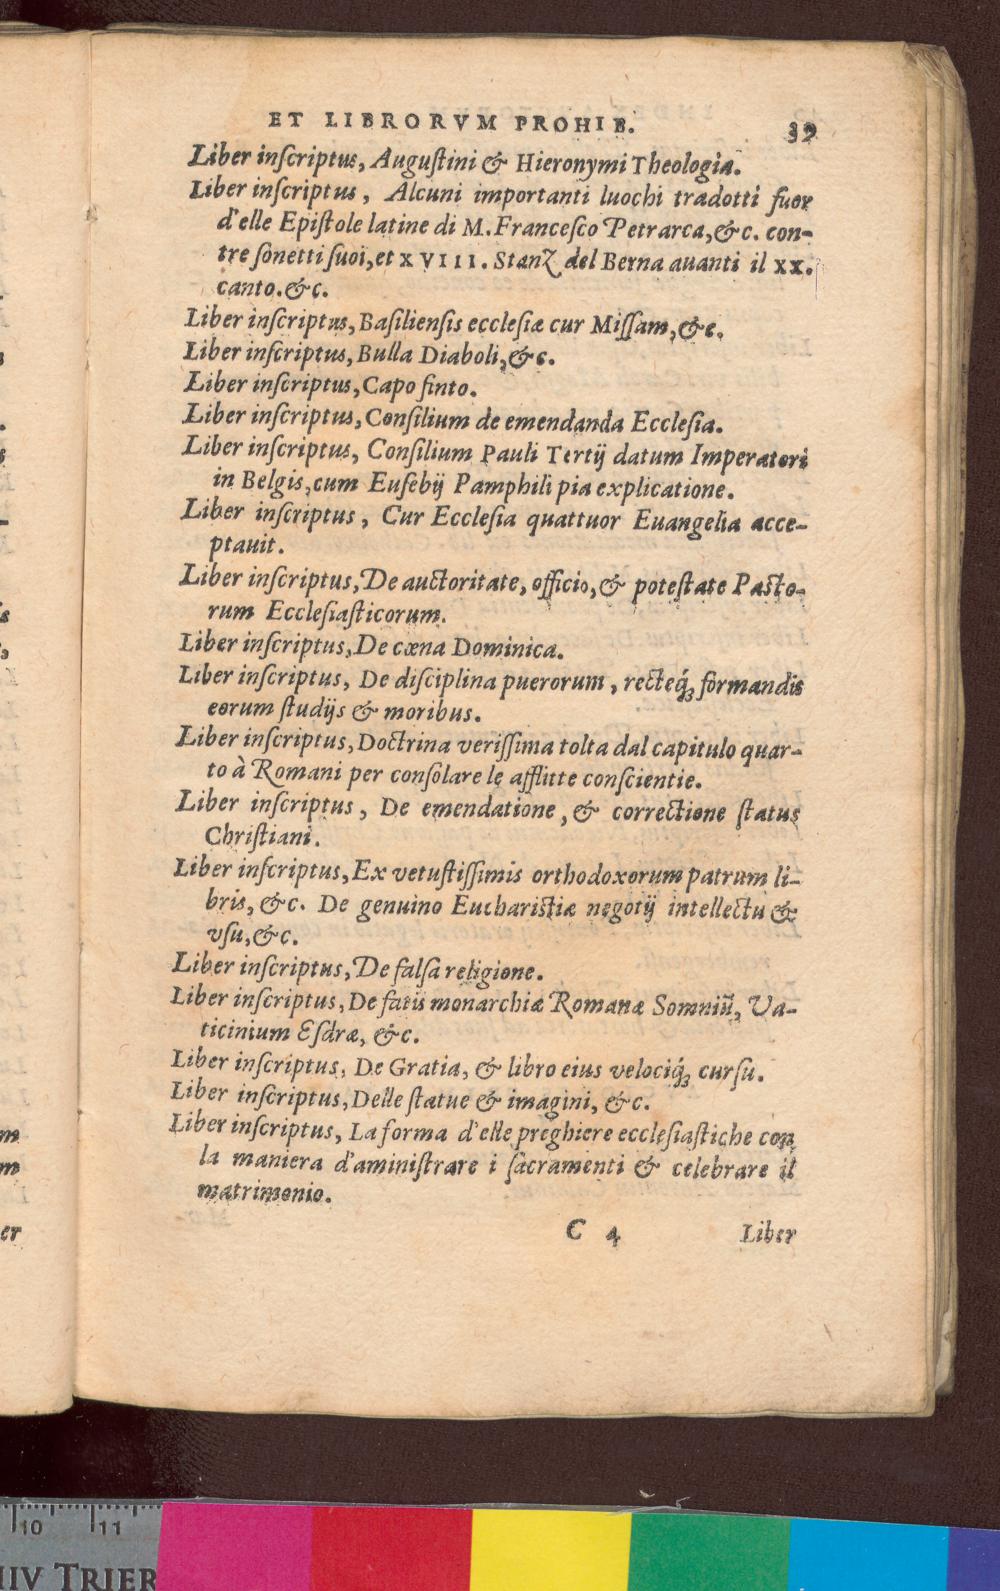 ET LIBRORVM PROHIB. 39
Liber inſcriptus, Auguſtini & Hieronymi Theologia.
Liber inſcriptus, Alcuni importanti luochi tradotti fuor
d'elle Epiſtole latine di M. Franceſco Petrarca, &c. con-
tre ſonetti ſuoi, et XVIII. Stanz del Berna auanti il XX.
canto. &c.
Liber inſcriptus, Baſilienſis eccleſiæ cur Miſſam, &c.
Liber inſcriptus, Bulla Diaboli, &c.
Liber inſcriptus, Capo finto.
Liber inſcriptus, Conſilium de emendanda Eccleſia.
Liber inſcriptus, Conſilium Pauli Tertij datum Imperatori
in Belgis, cum Euſebij Pamphili pia explicatione.
Liber inſcriptus, Cur Eccleſia quattuor Euangelia acce-
ptauit.
Liber inſcriptus, De auctoritate, officio, & poteſtate Paſto-
rum Eccleſiaſticorum.
Liber inſcriptus, De cœna Dominica.
Liber inſcriptus, De diſciplina puerorum, recteq́; formandis
eorum ſtudijs & moribus.
Liber inſcriptus, Doctrina veriſſima tolta dal capitulo quar-
to à Romani per conſolare le afflitte conſcientie.
Liber inſcriptus, De emendatione, & correctione ſtatus
Chriſtiani.
Liber inſcriptus, Ex vetuſtiſſimis orthodoxorum patrum li-
bris, &c. De genuino Euchariſtiæ negotij intellectu &
vſu, &c.
Liber inſcriptus, De falſa religione.
Liber inſcriptus, De fatis monarchiæ Romanæ Somniū, Va-
ticinium Eſdræ, &c.
Liber inſcriptus, De Gratia, & libro eius velociq́; curſu.
Liber inſcriptus, Delle ſtatue & imagini, &c.
Liber inſcriptus, La forma d'elle preghiere eccleſiaſtiche con
la maniera d'aminiſtrare i ſacramenti & celebrare il
matrimonio.
C 4 Liber
er
10 11
HIV TRIER